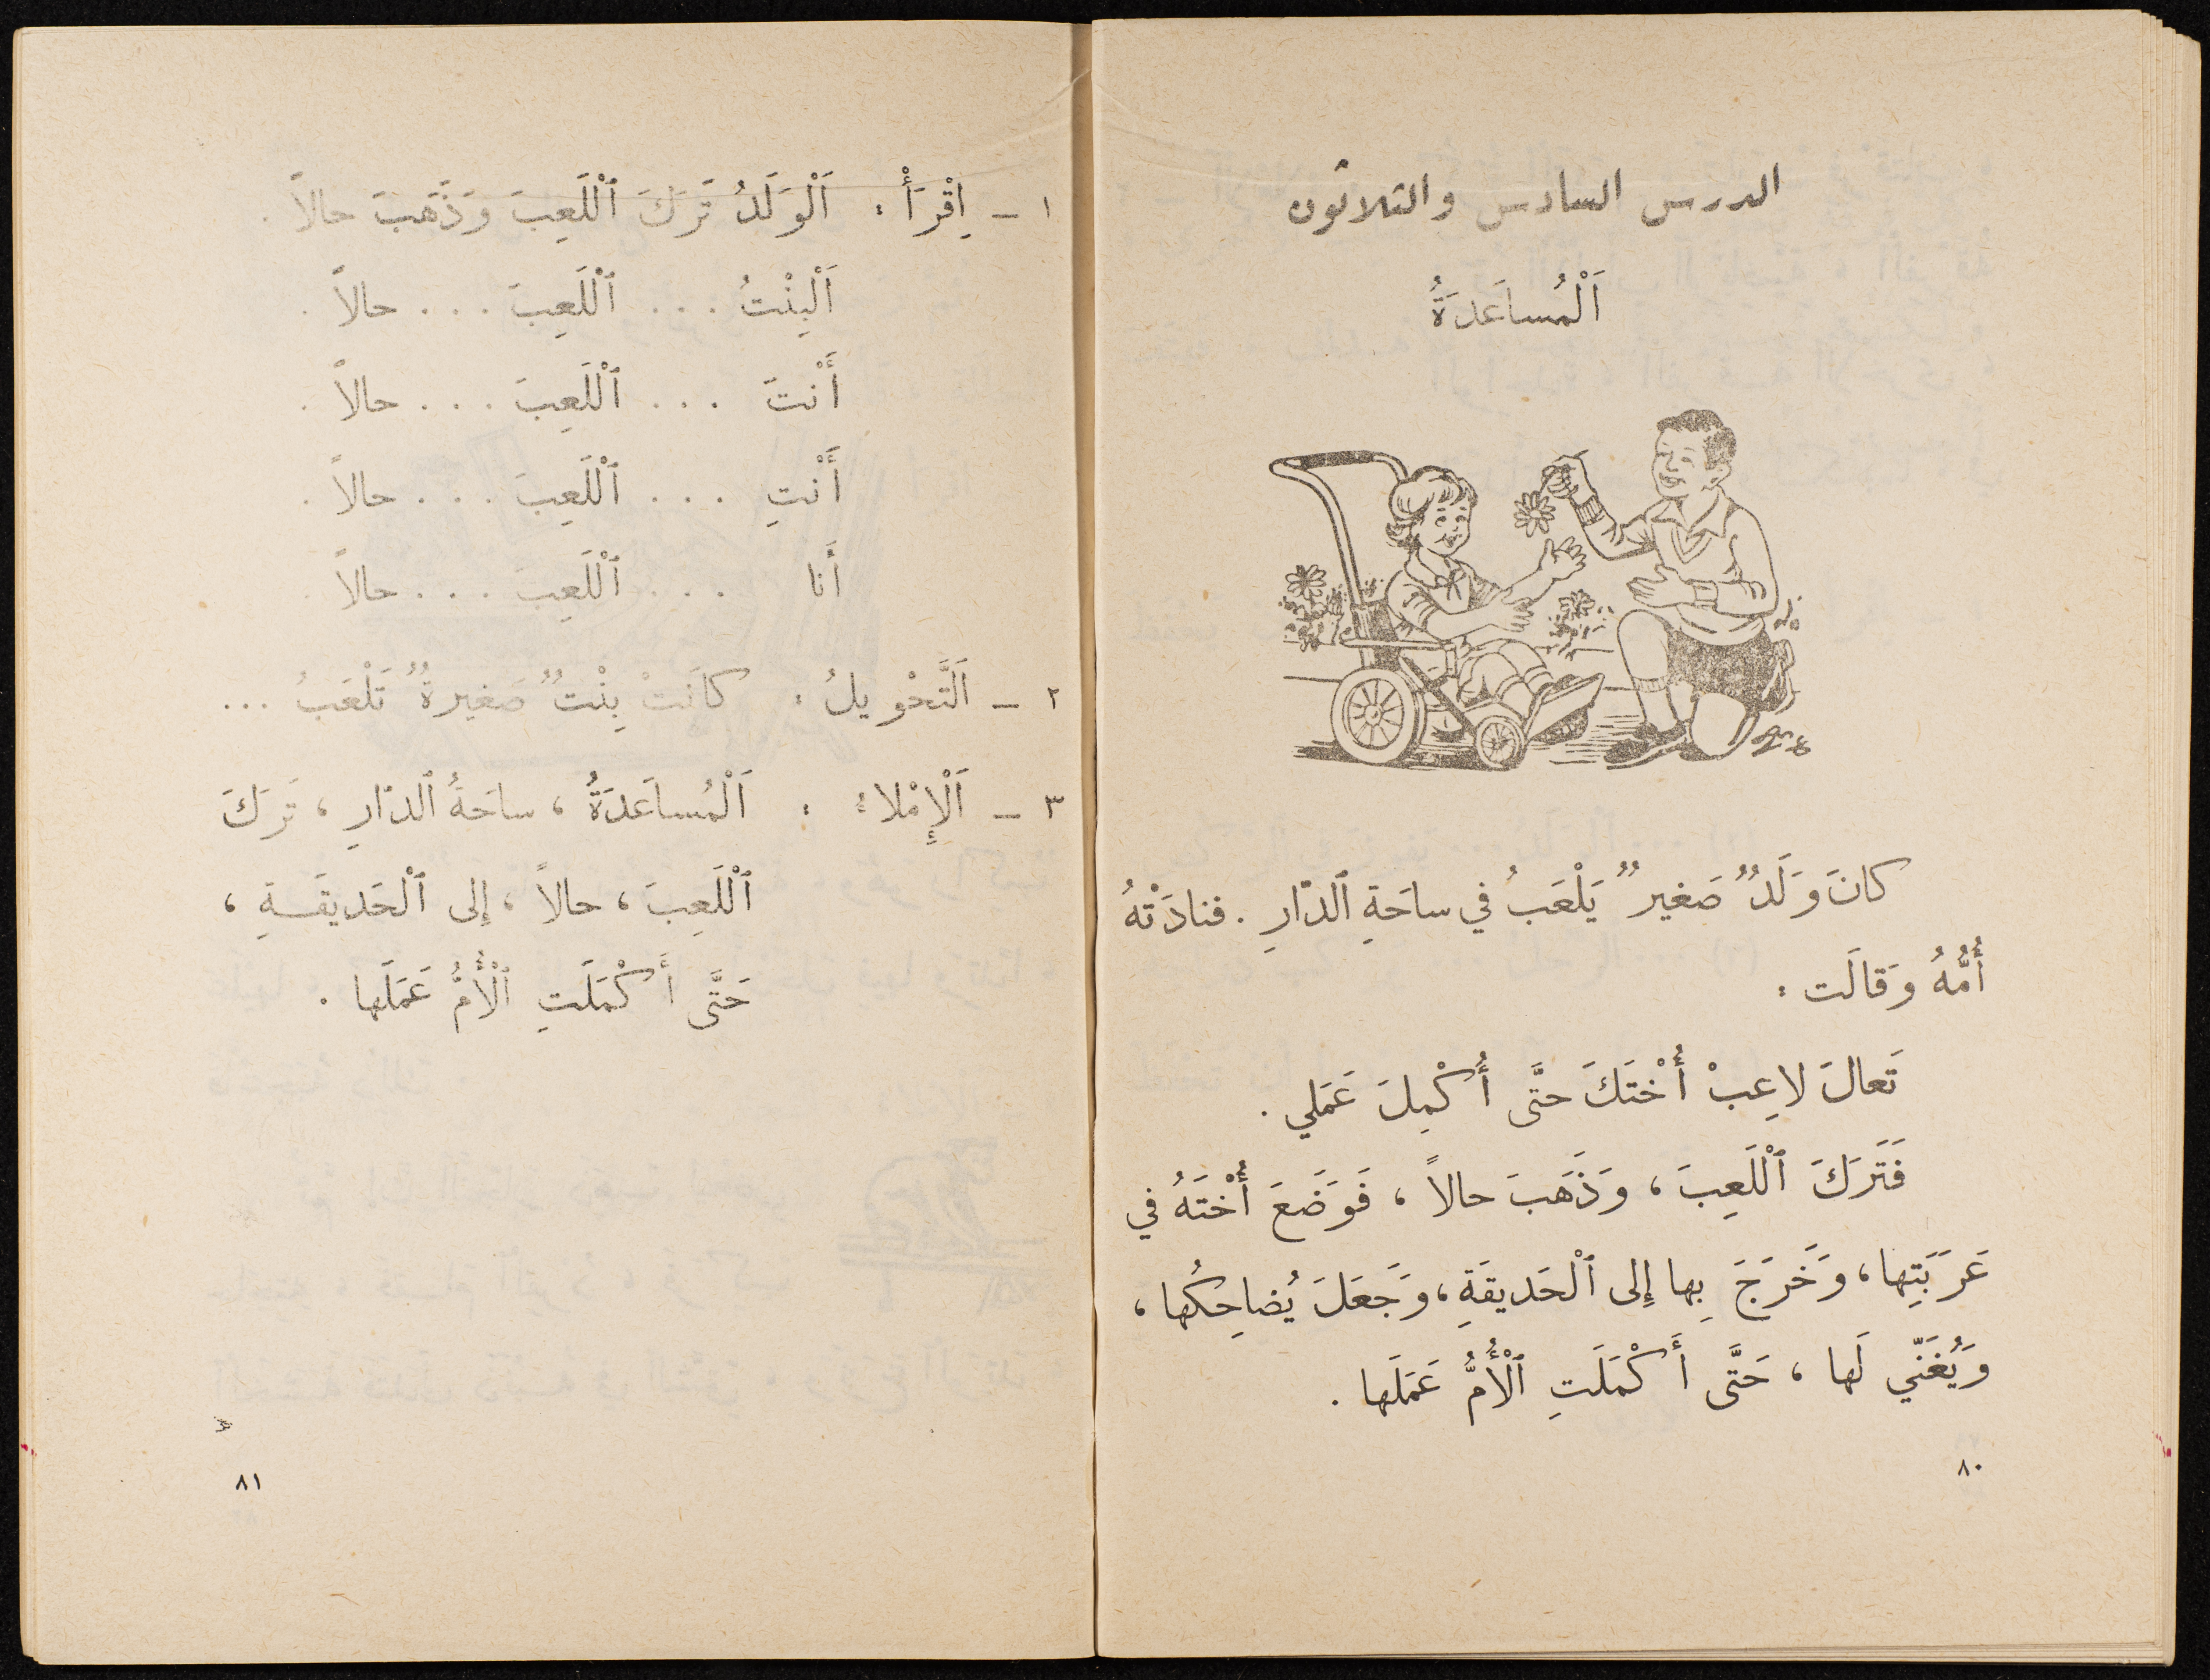 الدرس السادس والثلاثون
اَلْمُساعَدَةُ
كانَ وَلَدٌ صَغيرٌ يَلْعَبُ في ساحَةِ ٱلدّارِ . فنادَتْهُ
أُمُّهُ وَقالَت :
تَعالَ لاعِبْ أُخْتَكَ حتَّى أُكْمِلَ عَمَلي .
فَتَرَكَ ٱللَّعِبَ ، وَذَهَبَ حالاً ، فَوَضَعَ أُخْتَهُ في
عَرَبَتِها ، وَخَرَجَ بِها إِلى ٱلْحَديقَةِ ، وَجَعَلَ يُضاحِكُها ،
وَيُغَنّي لَها ، حَتَّى أَكْمَلَتِ ٱلْأُمُّ عَمَلَها .
٨٠
١ – اِقْرَأْ : اَلْوَلَدُ تَرَكَ ٱللَّعِبَ وَذَهَبَ حالاً .
اَلْبِنْتُ . . . ٱللَّعِبَ . . . حالاً .
أَنْتَ . . . ٱللَّعِبَ . . . حالاً .
أَنْتِ . . . ٱللَّعِبَ . . . حالاً .
أَنا . . . ٱللَّعِبَ . . . حالاً .
٢ – اَلتَّحْويلُ : كانَتْ بِنْتٌ صَغيرةٌ تَلْعَبُ ...
٣ – اَلْإِمْلاءُ : اَلْمُساعَدَةُ ، ساحَةُ ٱلدّارِ ، تَرَكَ
ٱللَّعِبَ ، حالاً ، إِلى ٱلْحَديقَـةِ ،
حَتَّى أَكْمَلَتِ ٱلْأُمُّ عَمَلَها .
٨١